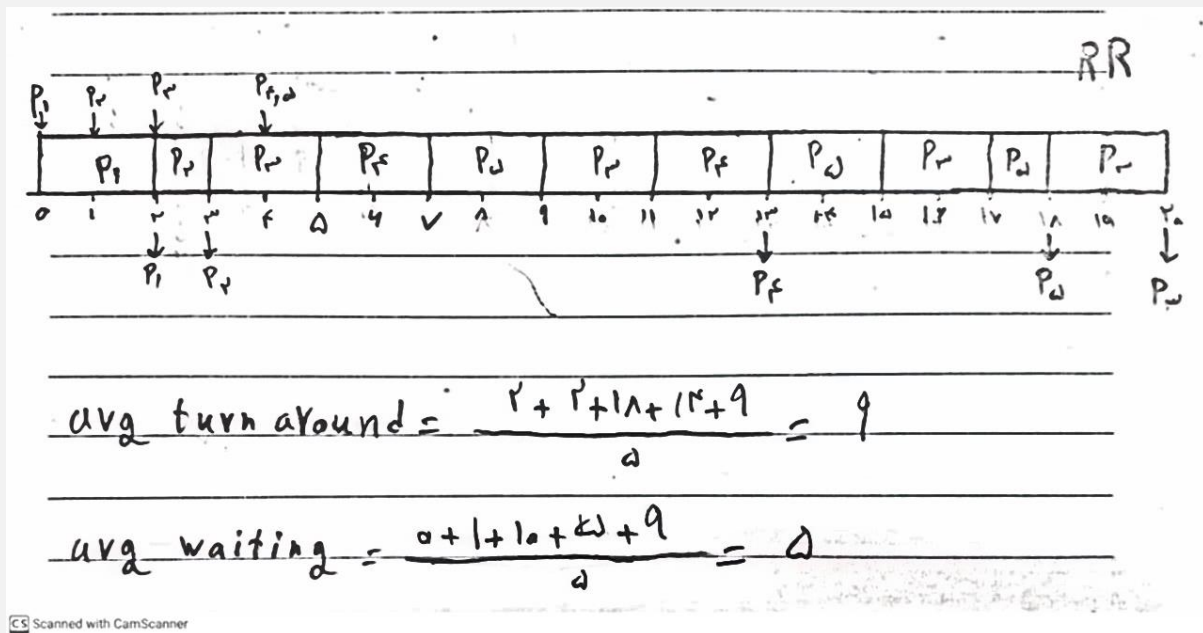 RR
P۱ P۲ P۳ P۴,۵
P۱ P۲ P۳ P۴ P۵ P۳ P۴ P۵ P۳ P۵ P۳
۰ ۱ ۲ ۳ ۴ ۵ ۶ ۷ ۸ ۹ ۱۰ ۱۱ ۱۲ ۱۳ ۱۴ ۱۵ ۱۶ ۱۷ ۱۸ ۱۹ ۲۰
P۱ P۲ P۴ P۵ P۳
avg turn around = ۲+۲+۱۸+۱۴+۹ = ۹
۵
avg waiting = ۰+۱+۱۰+ +۹ = ۵
۵
CS Scanned with CamScanner